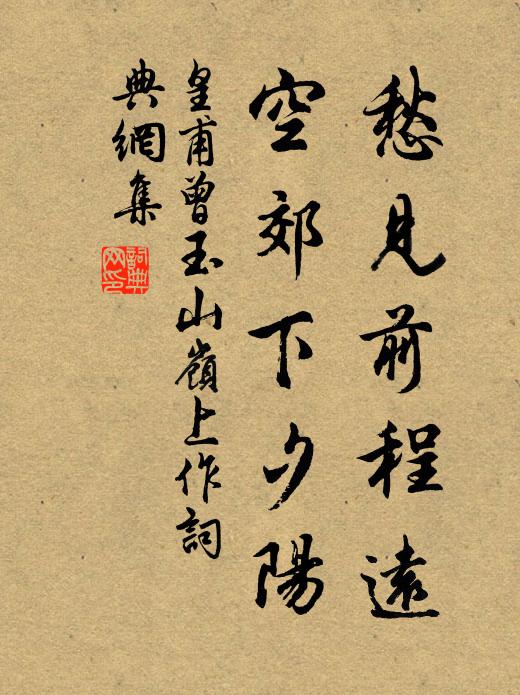 愁見前程遠
空郊下夕陽
皇甫曾玉山嶺上作詞
典網集
詞典
网印